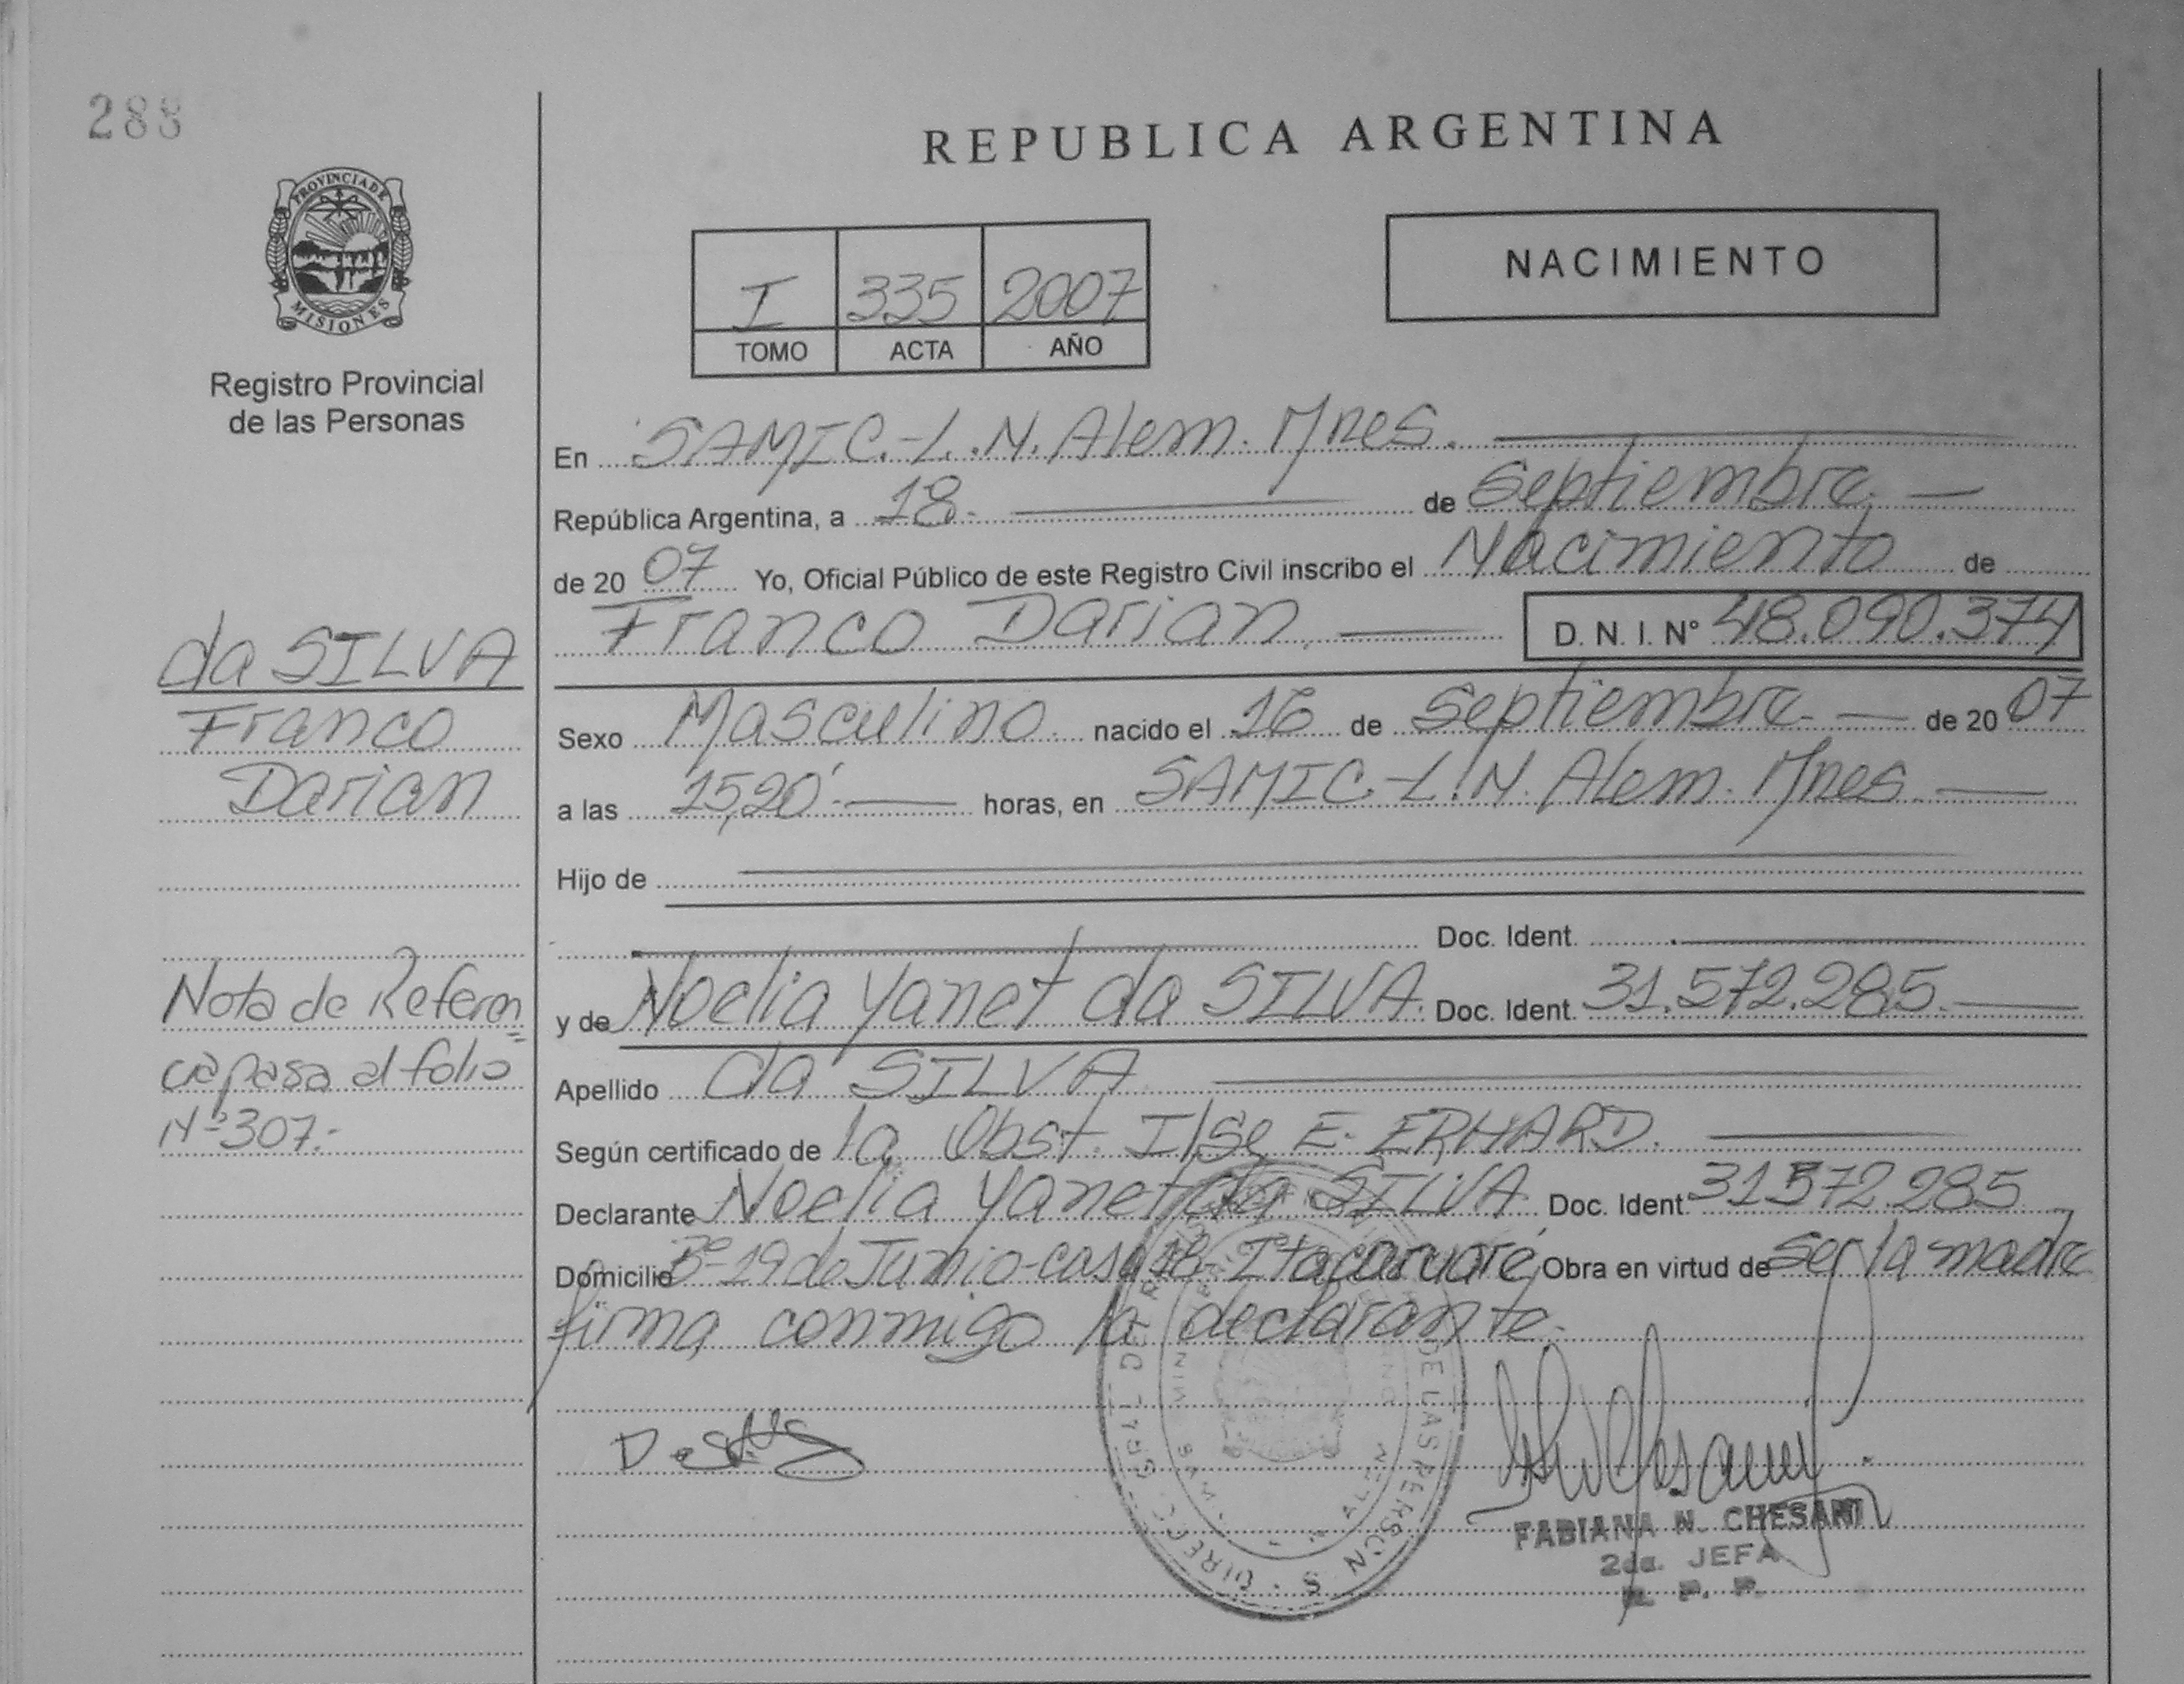 288
REPUBLICA ARGENTINA
PROVINCIA DE
MISIONES
Registro Provincial
de las Personas
I 335 2007
TOMO ACTA AÑO
NACIMIENTO
En SAMIC.-L.N.Alem. Mnes.
República Argentina, a 18. de septiembre
de 20 07 Yo, Oficial Público de este Registro Civil inscribo el Nacimiento de
Franco Darian D. N. I. N° 48.090.374
da SILVA
Franco
Darian
Sexo Masculino nacido el 16 de septiembre de 20 07
a las 15,20' horas, en SAMIC.-L.N. Alem. Mnes
Hijo de
Doc. Ident.
y de Noelia Yanet da SILVA. Doc. Ident. 31.572.285.
Apellido da SILVA
Según certificado de la Obst. Ilse E. ERHARD.
Declarante Noelia Yanet da SILVA Doc. Ident. 31572.285
Domicilio B°-19 de Junio-casa 18-Itacaruaré, Obra en virtud de ser la madre
firma conmigo la declarante.
Nota de Referen=
cia pasa al folio
N° 307.-
DE LAS PERSON S
ALEM
FABIANA N. CHESANI
2da. JEFA
R. P. P.